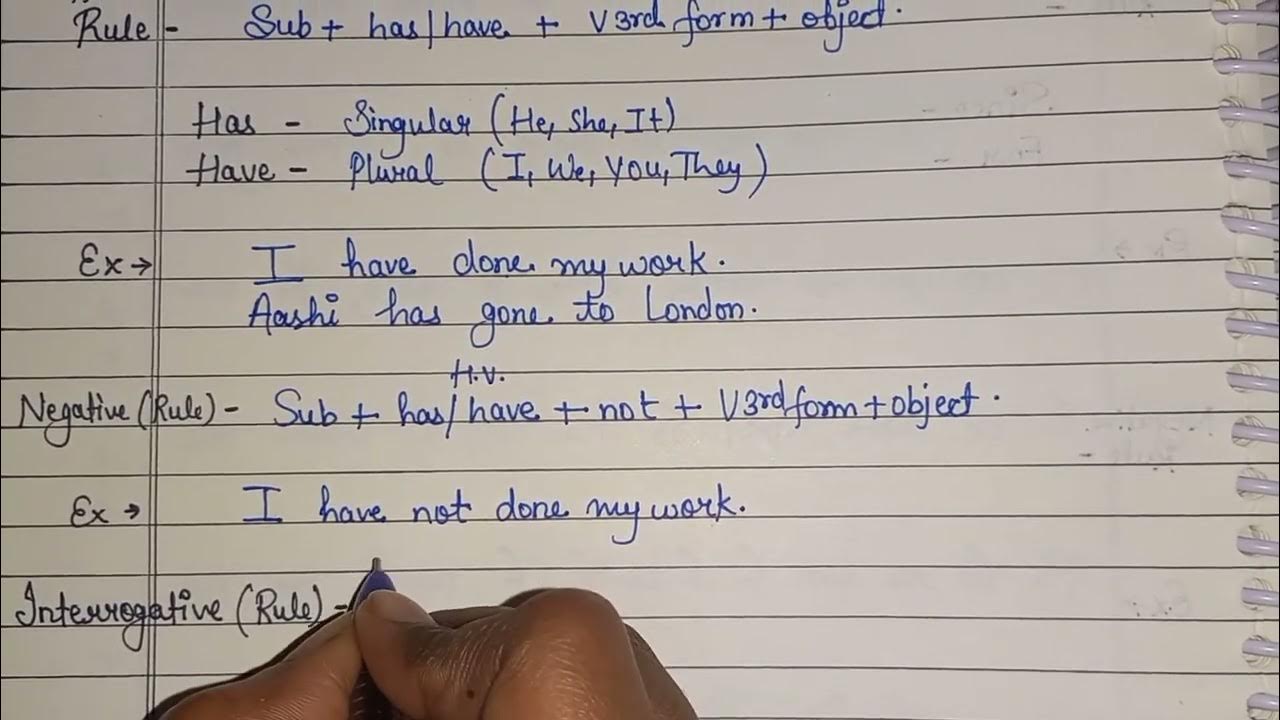 Rule - Sub + has/have + V3rd form + object.
Has - Singular (He, She, It)
Have - Plural (I, We, You, They)
Ex → I have done my work.
Aashi has gone to London.
H.V.
Negative (Rule) - Sub + has/have + not + V3rd form + object.
Ex → I have not done my work.
Interrogative (Rule) -